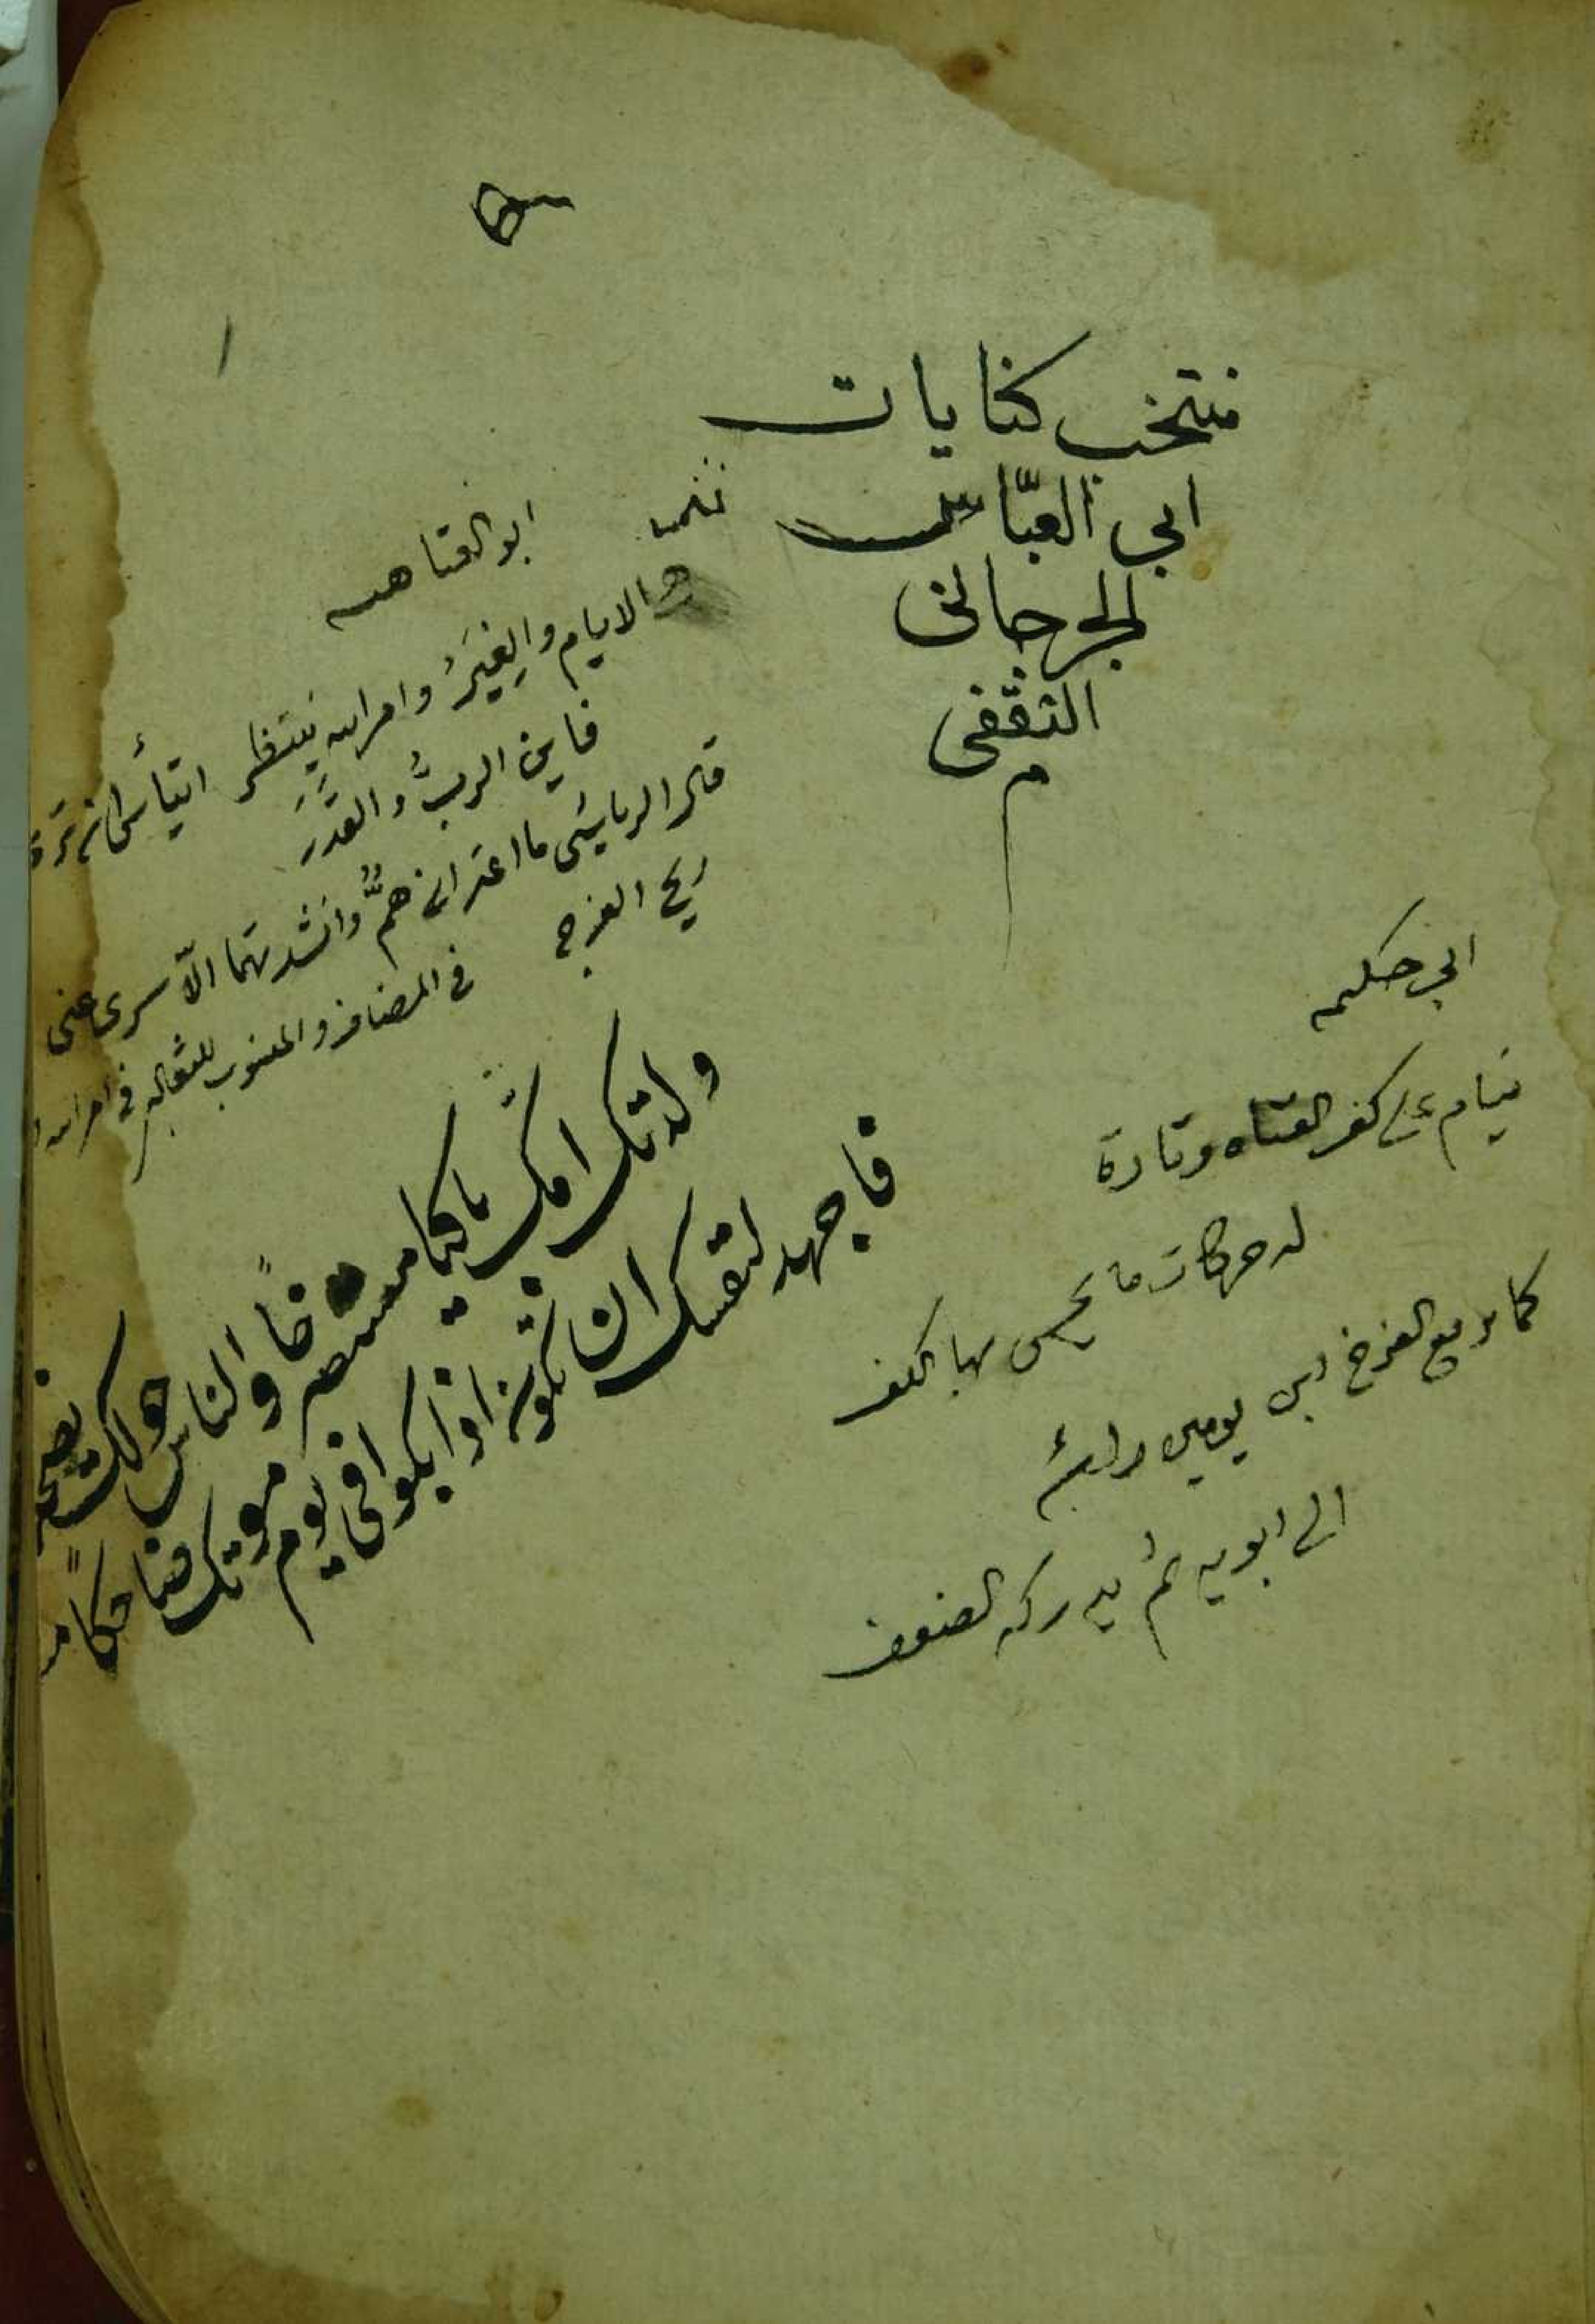 منتخب كنايات
ابي العبّاس
الجرجاني
الثقفي
م
ابو العتاهيه
هي الايام والغِيَرُ وامر الله ينتظر
اتيأس ان ترى
فاين الربُّ والقدَرَ
قال الرياشي ما اعتراني همٌّ وانشدتهما الّا سرى عني
ريح الفرج في المضاف والمنسوب للثعالبي في امر الله
ولدتك امّك باكيا مستصرخاً والناس حولك يضحكو
فاجهد لنفسك ان تكون اذا بكوا في يوم موتك ضاحكاً مسر
ابي حكيمه
ينام على كف الفتاه وتارة
له حركات ما يحس بها الكف
كما يرفع الفرخ ابن يومين راسه
الى ابويه ثم يدركه الضعف